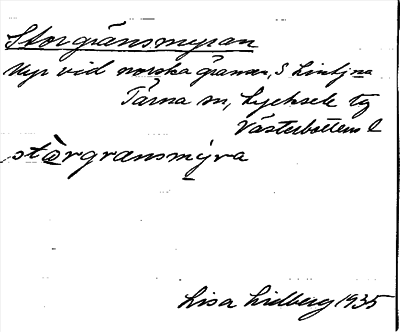 Storgränsmyran
Myr vid norska gränsen, S
Tärna sn, Lycksele tg
Västerbottens l
stòrgrænsmýra
Lisa Lidberg 1935